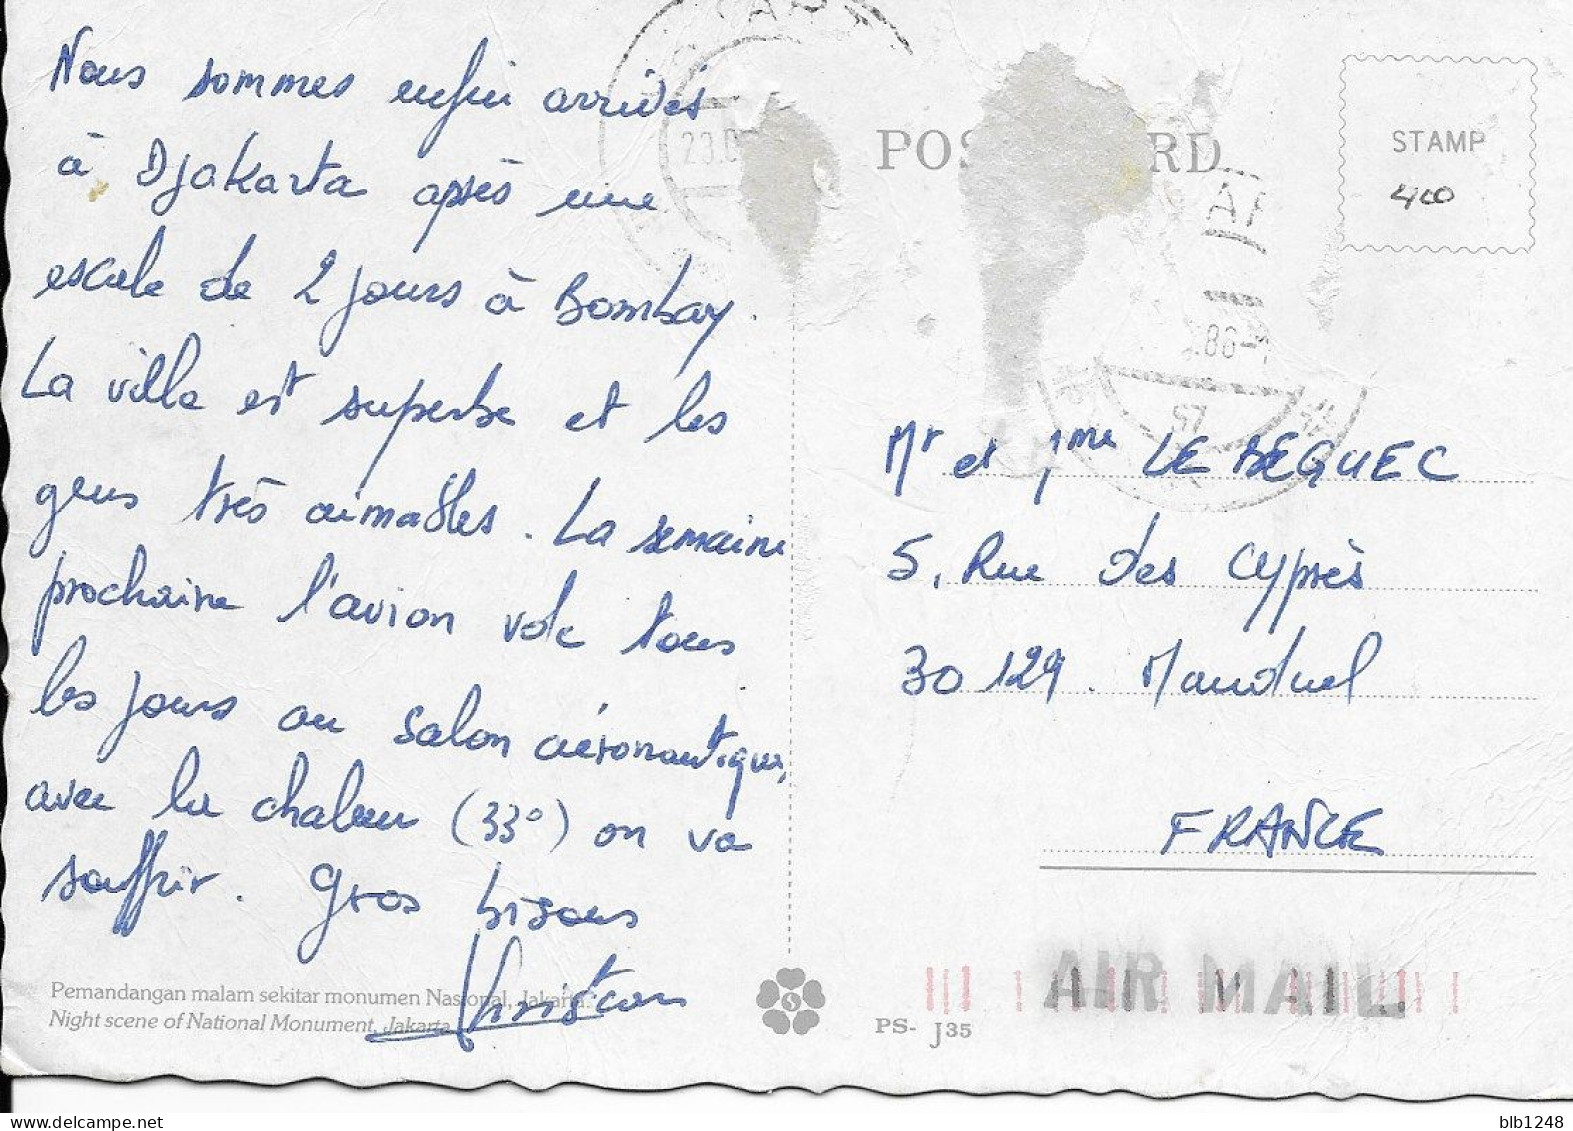 Nous sommes enfin arrivés
à Djakarta après une
escale de 2 jours à Bombay.
La ville est superbe et les
gens très aimables. La semaine
prochaine l'avion vole tous
les jours au salon aéronautique,
avec la chaleur (33°) on va
souffrir. Gros bisous
Christian
Pemandangan malam sekitar monumen Nasional, Jakarta.
Night scene of National Monument, Jakarta
POS RD
STAMP
400
23.0
.86-
Mr et Mme LE BEGUEC
5, Rue des Cyprès
30 129. Manduel
FRANCE
AIR MAIL
PS- J35
blb1248